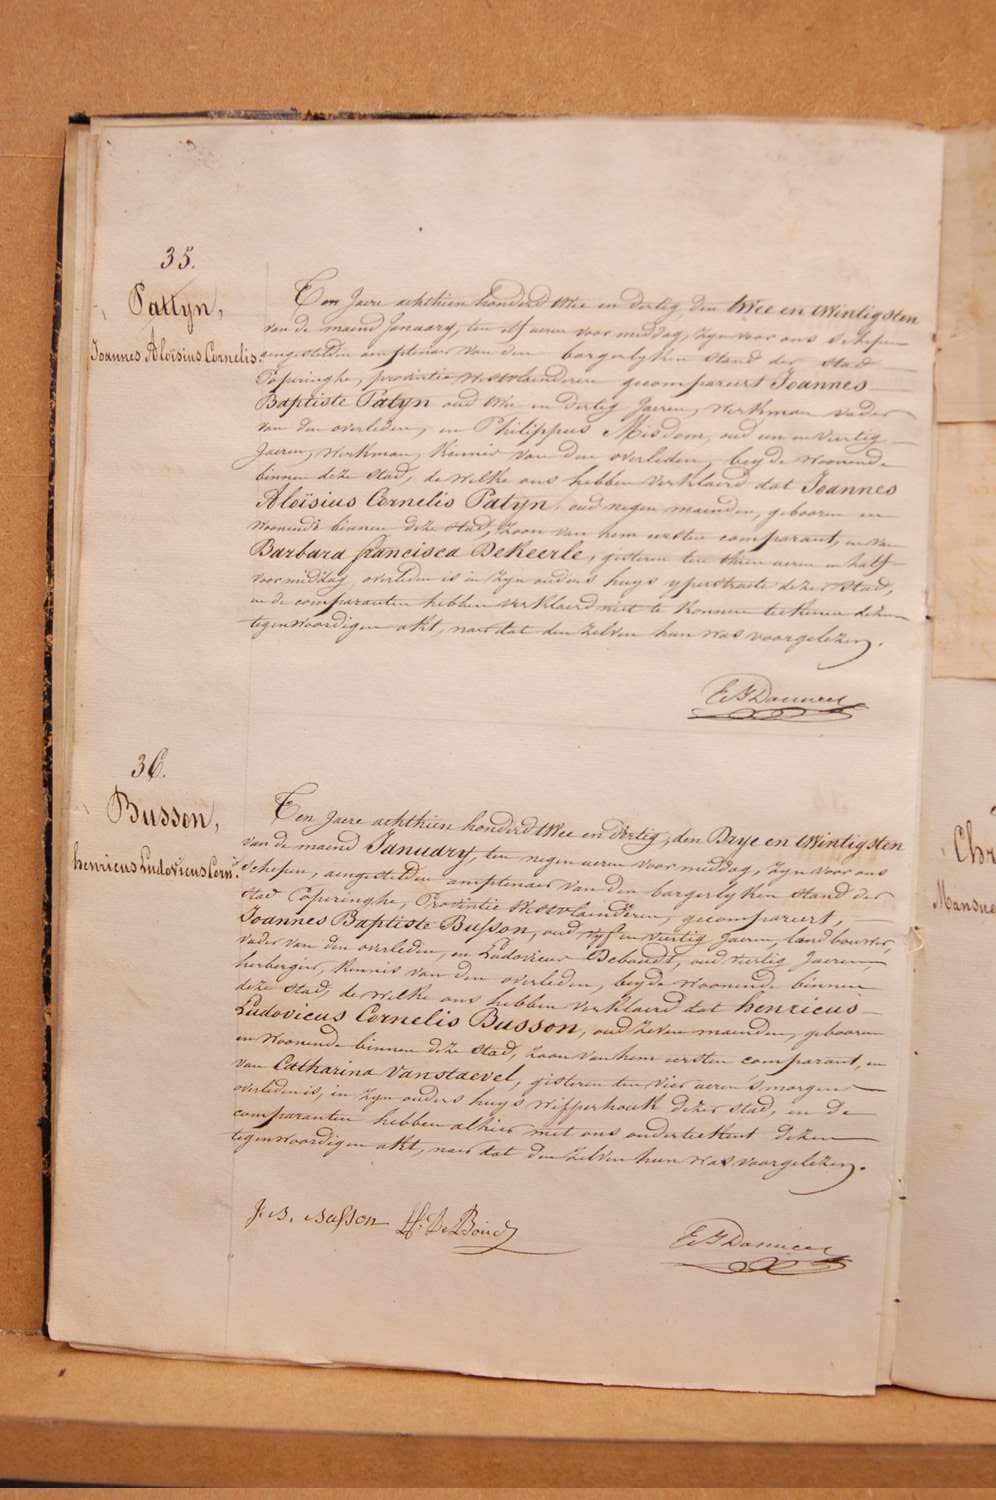 35.
Pattyn,
Joannes Aloïsius Cornelis
Ten Jaere achthien honderd twee en dertig, den twee en twintigsten
van de maend January, ten elf ueren voor middag, zyn voor ons schepen
aengestelden amptenaer van den borgerlyken stand der stad
Poperinghe, provintie westvlaenderen gecompareert Joannes
Baptiste Patyn oud twee en dertig Jaeren, werkman vader
van den overleden, en Philippus Misdom, oud een en viertig
Jaeren, werkman, kennis van den overleden, beyde woonende
binnen deze stad, de welke ons hebben verklaerd dat Joannes
Aloïsius Cornelis Patyn, oud negen maenden, gebooren en
woonende binnen deze stad, zoon van hem eersten comparant, en van
Barbara francisca DeKeerle, gisteren ten thien ueren en half
voormiddag, overleden is in zyn ouders huys yperstraete dezer stad,
en de comparanten hebben verklaerd niet te konnen teekenen dezen
tegenwoordigen akt, naer dat den zelven hun was voorgelezen.
36.
Busson,
henricus Ludovicus Corn.s
Ten Jaere achthien honderd twee en dertig, den Drye en twintigsten
van de maend January, ten negen ueren voor middag, zyn voor ons
schepen, aengestelden amptenaer van den borgerlyken stand der
stad Poperinghe, Provintie Westvlaenderen, gecompareert,
Joannes Baptiste Busson, oud vyf en viertig Jaeren, landbouwer,
vader van den overleden, en Ludovicus Deboudt, oud viertig Jaeren,
herbergier, kennis van den overleden, beyde woonende binnen
deze stad, de welke ons hebben verklaerd dat henricus
Ludovicus Cornelis Busson, oud zeven maenden, gebooren
en woonende binnen deze stad, zoon van hem eersten comparant, en
van Catharina Vanstaevel, gisteren ten vier ueren s'morgens
overleden is, in zyn ouders huys wipperhoek dezer stad, en de
comparanten hebben alhier met ons onderteekent dezen
tegenwoordigen akt, naer dat den zelven hun was voorgelezen.
J. B. Busson
Chr
Mansue